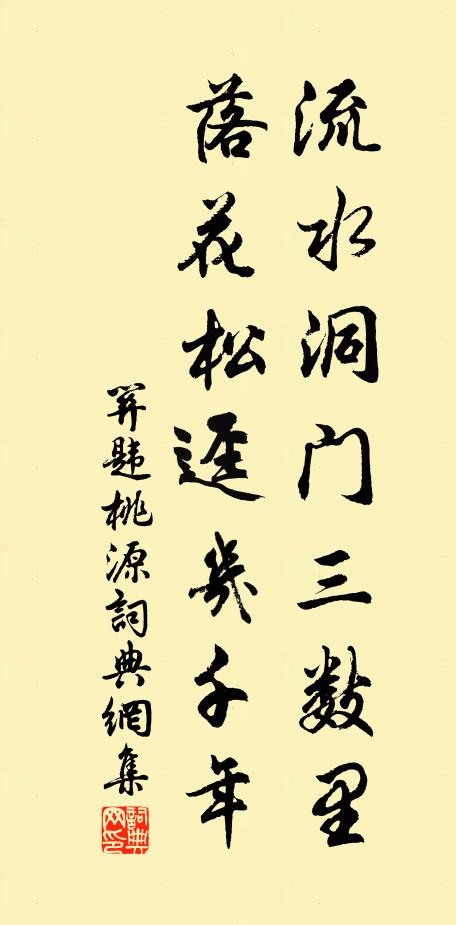 流水洞门三数里
落花松迳幾千年
題桃源詞典網集
詞典网印